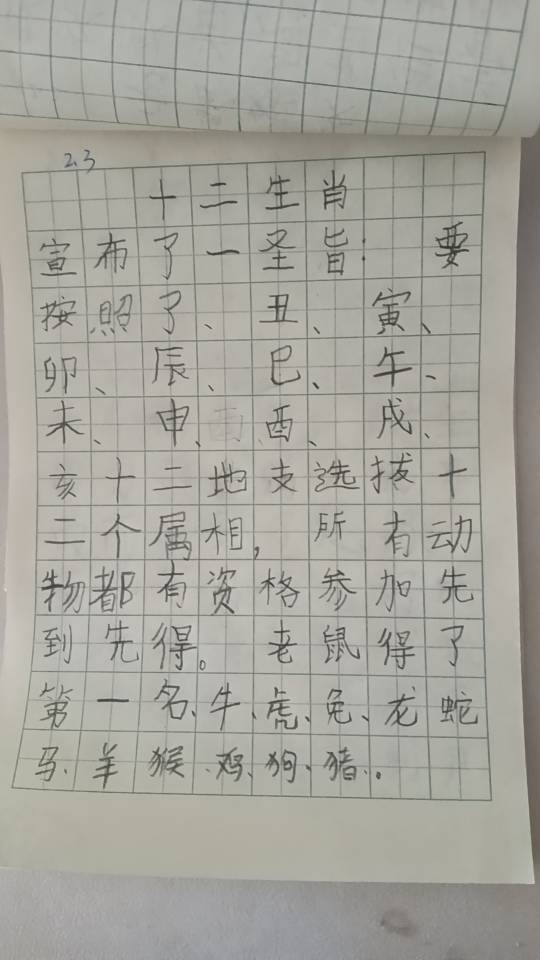 2.3
十二生肖
宣布了一圣旨：要
按照了、丑、寅、
卯、辰、巳、午、
未、申、酉、戌、
亥十二地支选拔十
二个属相，所有动
物都有资格参加先
到先得。老鼠得了
第一名、牛、虎、兔、龙蛇
马、羊猴、鸡、狗、猪、。